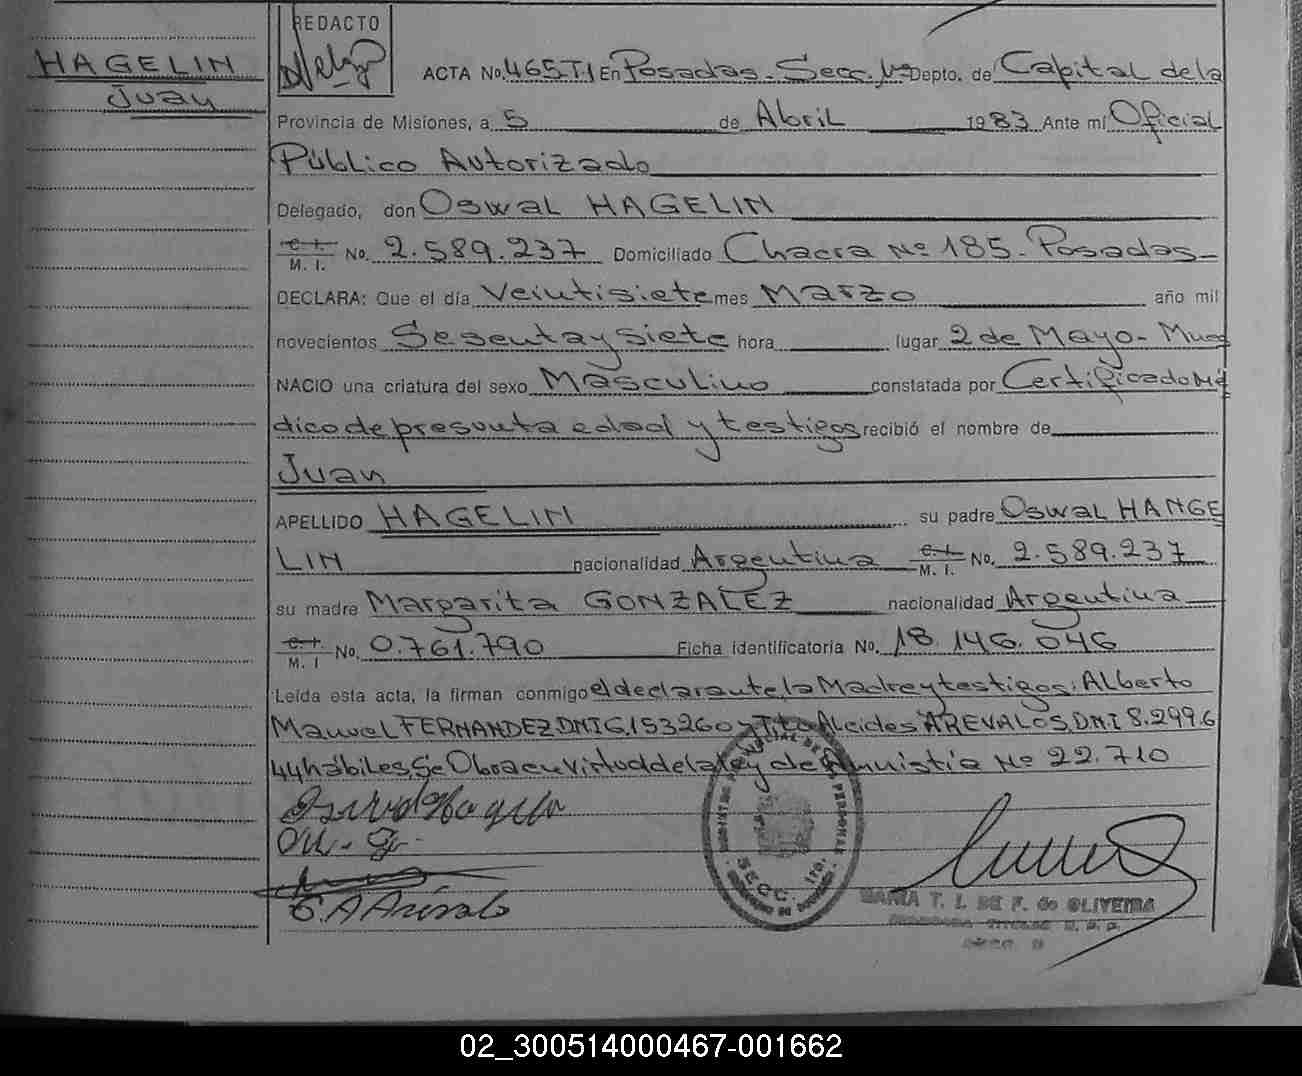 HAGELIN
Juan
REDACTO
ACTA No. 465 T.1 En Posadas - Secc. 1ª Depto. de Capital de la
Provincia de Misiones, a 5 de Abril 1983 Ante mí Oficial
Público Autorizado
Delegado, don Oswal HAGELIN
C. I. M. I. No. 2.589.237 Domiciliado Chacra Nº 185 - Posadas -
DECLARA: Que el día Veintisiete mes Marzo año mil
novecientos Sesenta y Siete hora lugar 2 de Mayo - Mnes
NACIO una criatura del sexo Masculino constatada por Certificado Mé
dico de presunta edad y testigos recibió el nombre de
Juan
APELLIDO HAGELIN su padre Oswal HANGE
LIN nacionalidad Argentina C. I. M. I. No. 2.589.237
su madre Margarita GONZALEZ nacionalidad Argentina
C. I. M. I No. 0.761.790 Ficha identificatoria No. 18.146.046
Leída esta acta, la firman conmigo el declarante la Madre y testigos: Alberto
Manuel FERNANDEZ DNI 6.153260 y Tito Alcides AREVALOS, DNI 8.299.6
44 hábiles. Se Obra en virtud de la ley de Amnistia Nº 22.710
SECC. 1ra.
MARIA T. I. DE F. de OLIVEIRA
02_300514000467-001662